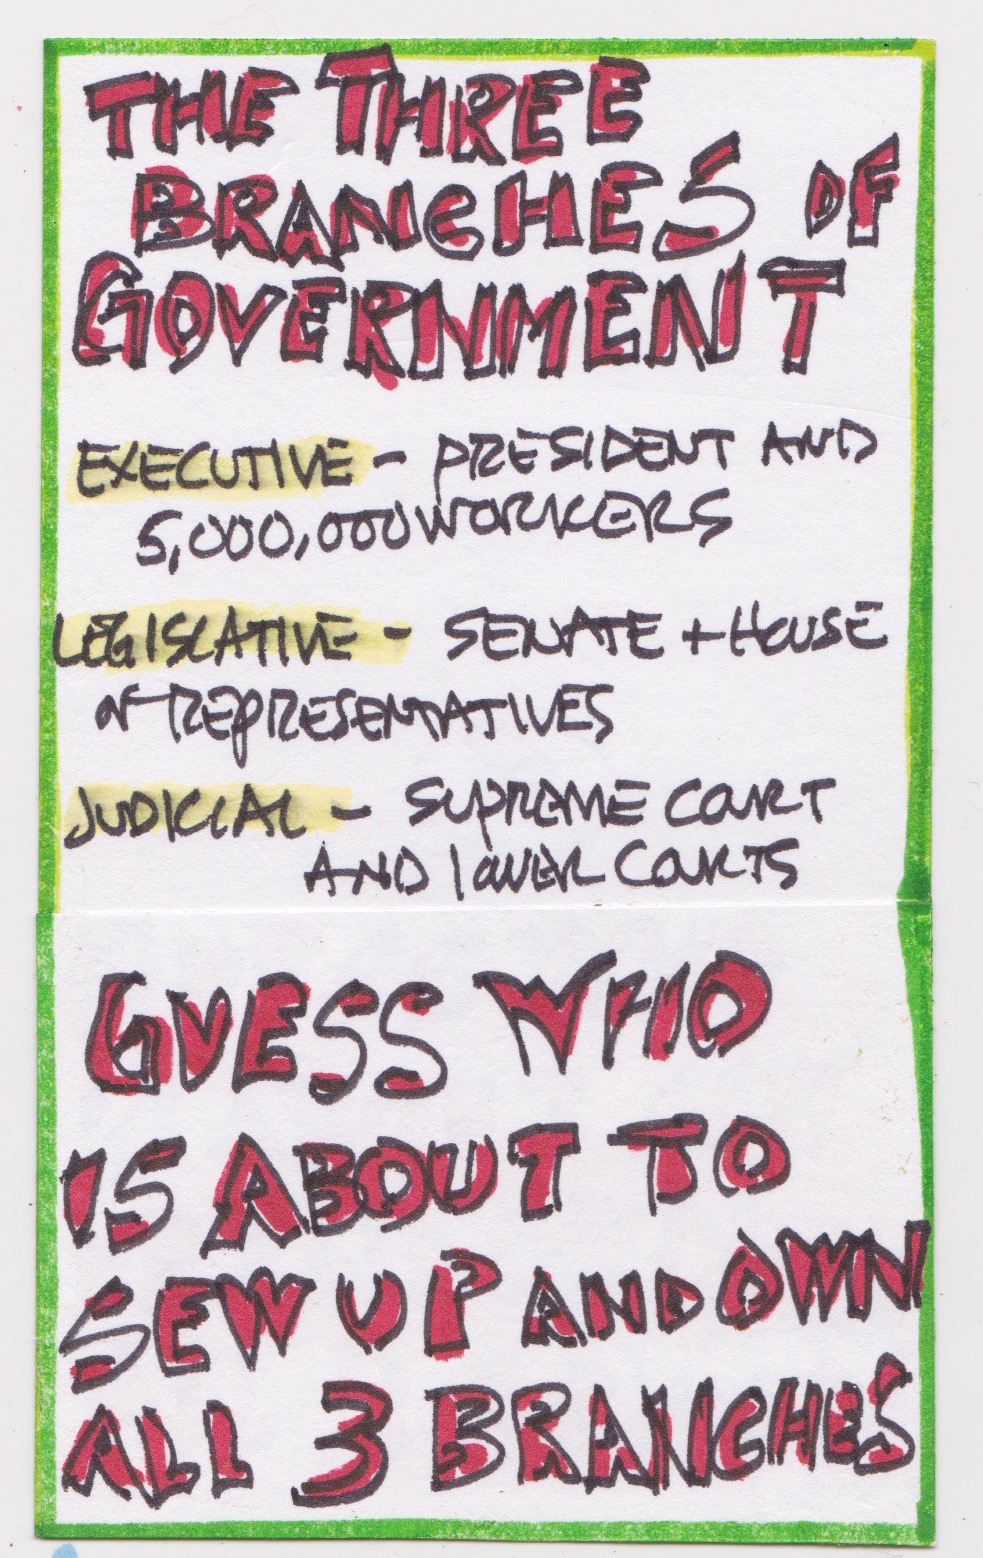 THE THREE
BRANCHES OF
GOVERNMENT
EXECUTIVE - PRESIDENT AND
5,000,000 WORKERS
LEGISLATIVE - SENATE + HOUSE
OF REPRESENTATIVES
JUDICIAL - SUPREME COURT
AND LOWER COURTS
GUESS WHO
IS ABOUT TO
SEW UP AND OWN
ALL 3 BRANCHES